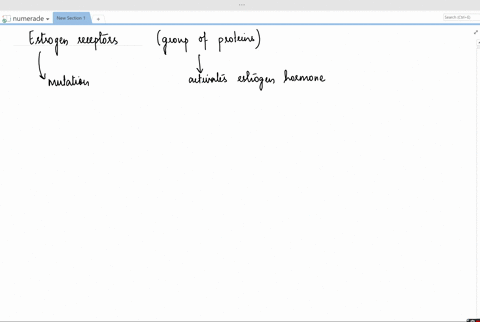 numerade
New Section 1
+
Search (Ctrl+E)
Estrogen receptors (group of proteins)
mutation activates estrogen hormone